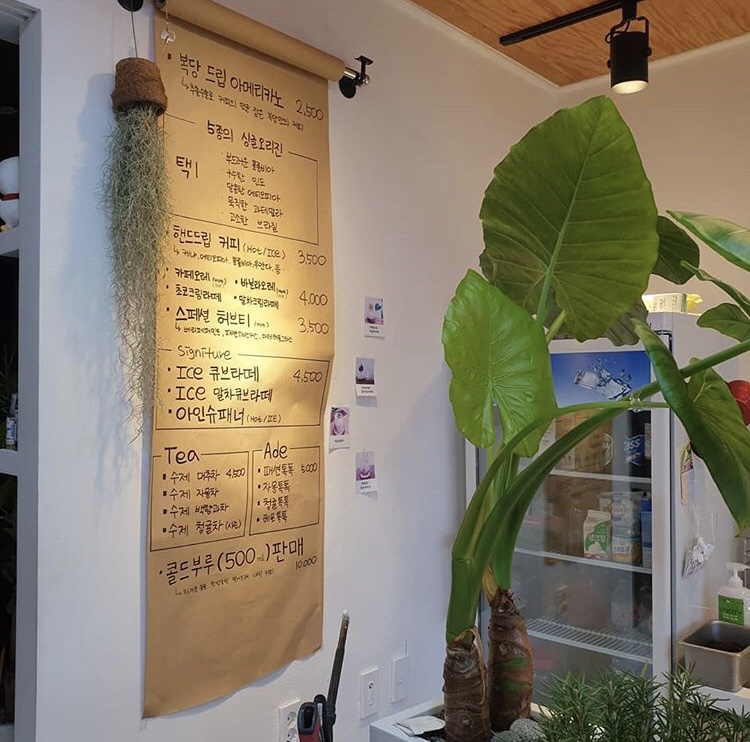 · 복당 드립 아메리카노 2,500
5종의 싱글오리진
택1
· 부드러운 콜롬비아
· 구수한 인도
· 달콤한 에티오피아
· 묵직한 과테말라
· 고소한 브라질
· 핸드드립 커피 (Hot/ICE) 3,500
↳ 케냐, 에티오피아, 콜롬비아, 르완다, 등
· 카페오레 · 바닐라오레
· 초코크림라떼 · 말차크림라떼 4,000
· 스페셜 허브티 3,500
Signiture
· ICE 큐브라떼 4,500
· ICE 말차큐브라떼
· 아인슈패너 (Hot/ICE)
Tea
· 수제 대추차 4,500
· 수제 자몽차
· 수제
· 수제 청귤차
Ade
5,000
· 자몽톡톡
· 청귤톡톡
· 레몬톡톡
· 콜드브루 (500ml) 판매 10,000